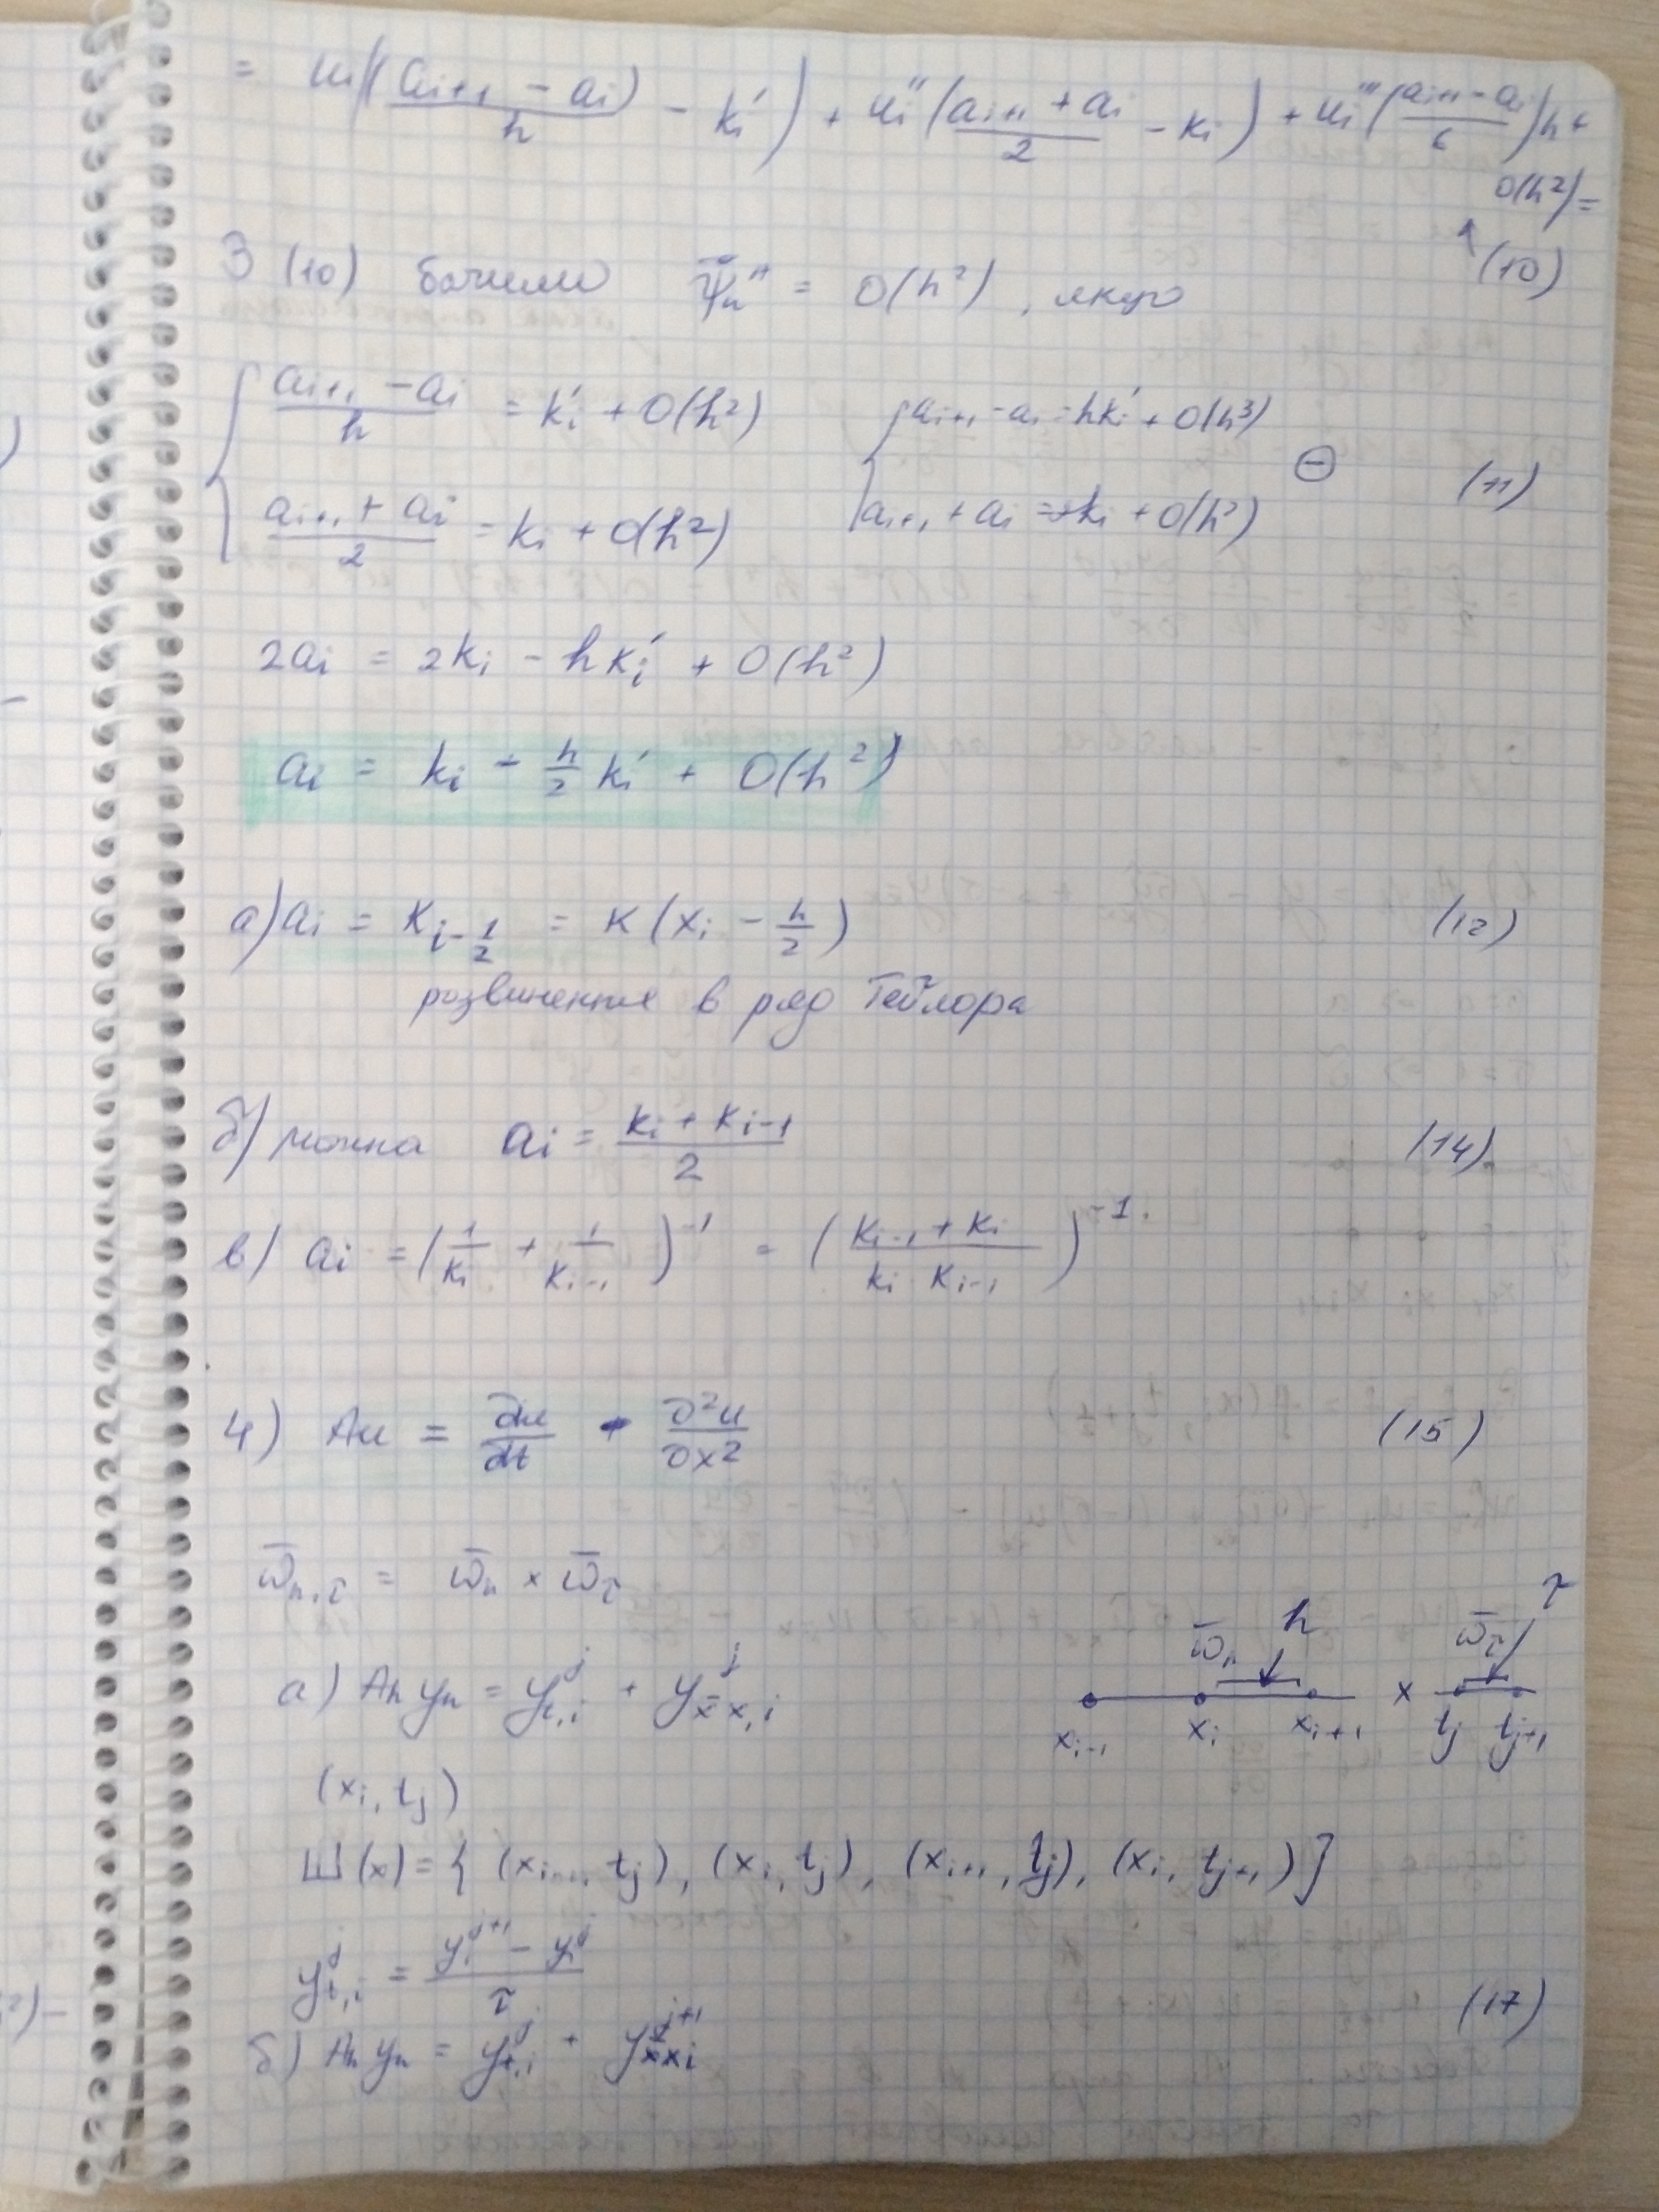 = u_i'((a_{i+1} - a_i)/h - k_i') + u_i''((a_{i+1} + a_i)/2 - k_i) + u_i'''((a_{i+1} - a_i)/6)h +
O(h²) =
(10)
З (10) бачимо ψ̄_h'' = O(h²), якщо
{ (a_{i+1} - a_i)/h = k_i' + O(h²) { a_{i+1} - a_i = hk_i' + O(h³)
(a_{i+1} + a_i)/2 = k_i + O(h²) a_{i+1} + a_i = 2k_i + O(h²) ⊖ (11)
2a_i = 2k_i - hk_i' + O(h²)
a_i = k_i - h/2 k_i' + O(h²)
а) a_i = k_{i-1/2} = k(x_i - h/2) (12)
розвинення в ряд Тейлора
б) можна a_i = (k_i + k_{i-1})/2 (14)
в) a_i = (1/k_i + 1/k_{i-1})^{-1} = ((k_{i-1} + k_i)/(k_i k_{i-1}))^{-1}.
4) Au = ∂u/∂t - ∂²u/∂x² (15)
ω̄_{h,τ} = ω̄_h × ω̄_τ
ω̄_h h ω̄_τ τ
а) A_h y_h = y_{t,i}^j + y_{x̄x,i}^j
x_{i-1} x_i x_{i+1} × t_j t_{j+1}
(x_i, t_j)
Ш(x) = { (x_{i-1}, t_j), (x_i, t_j), (x_{i+1}, t_j), (x_i, t_{j+1}) }
y_{t,i}^j = (y_i^{j+1} - y_i^j)/τ
(17)
б) A_h y_h = y_{t,i}^j + y_{x̄x,i}^{j+1}